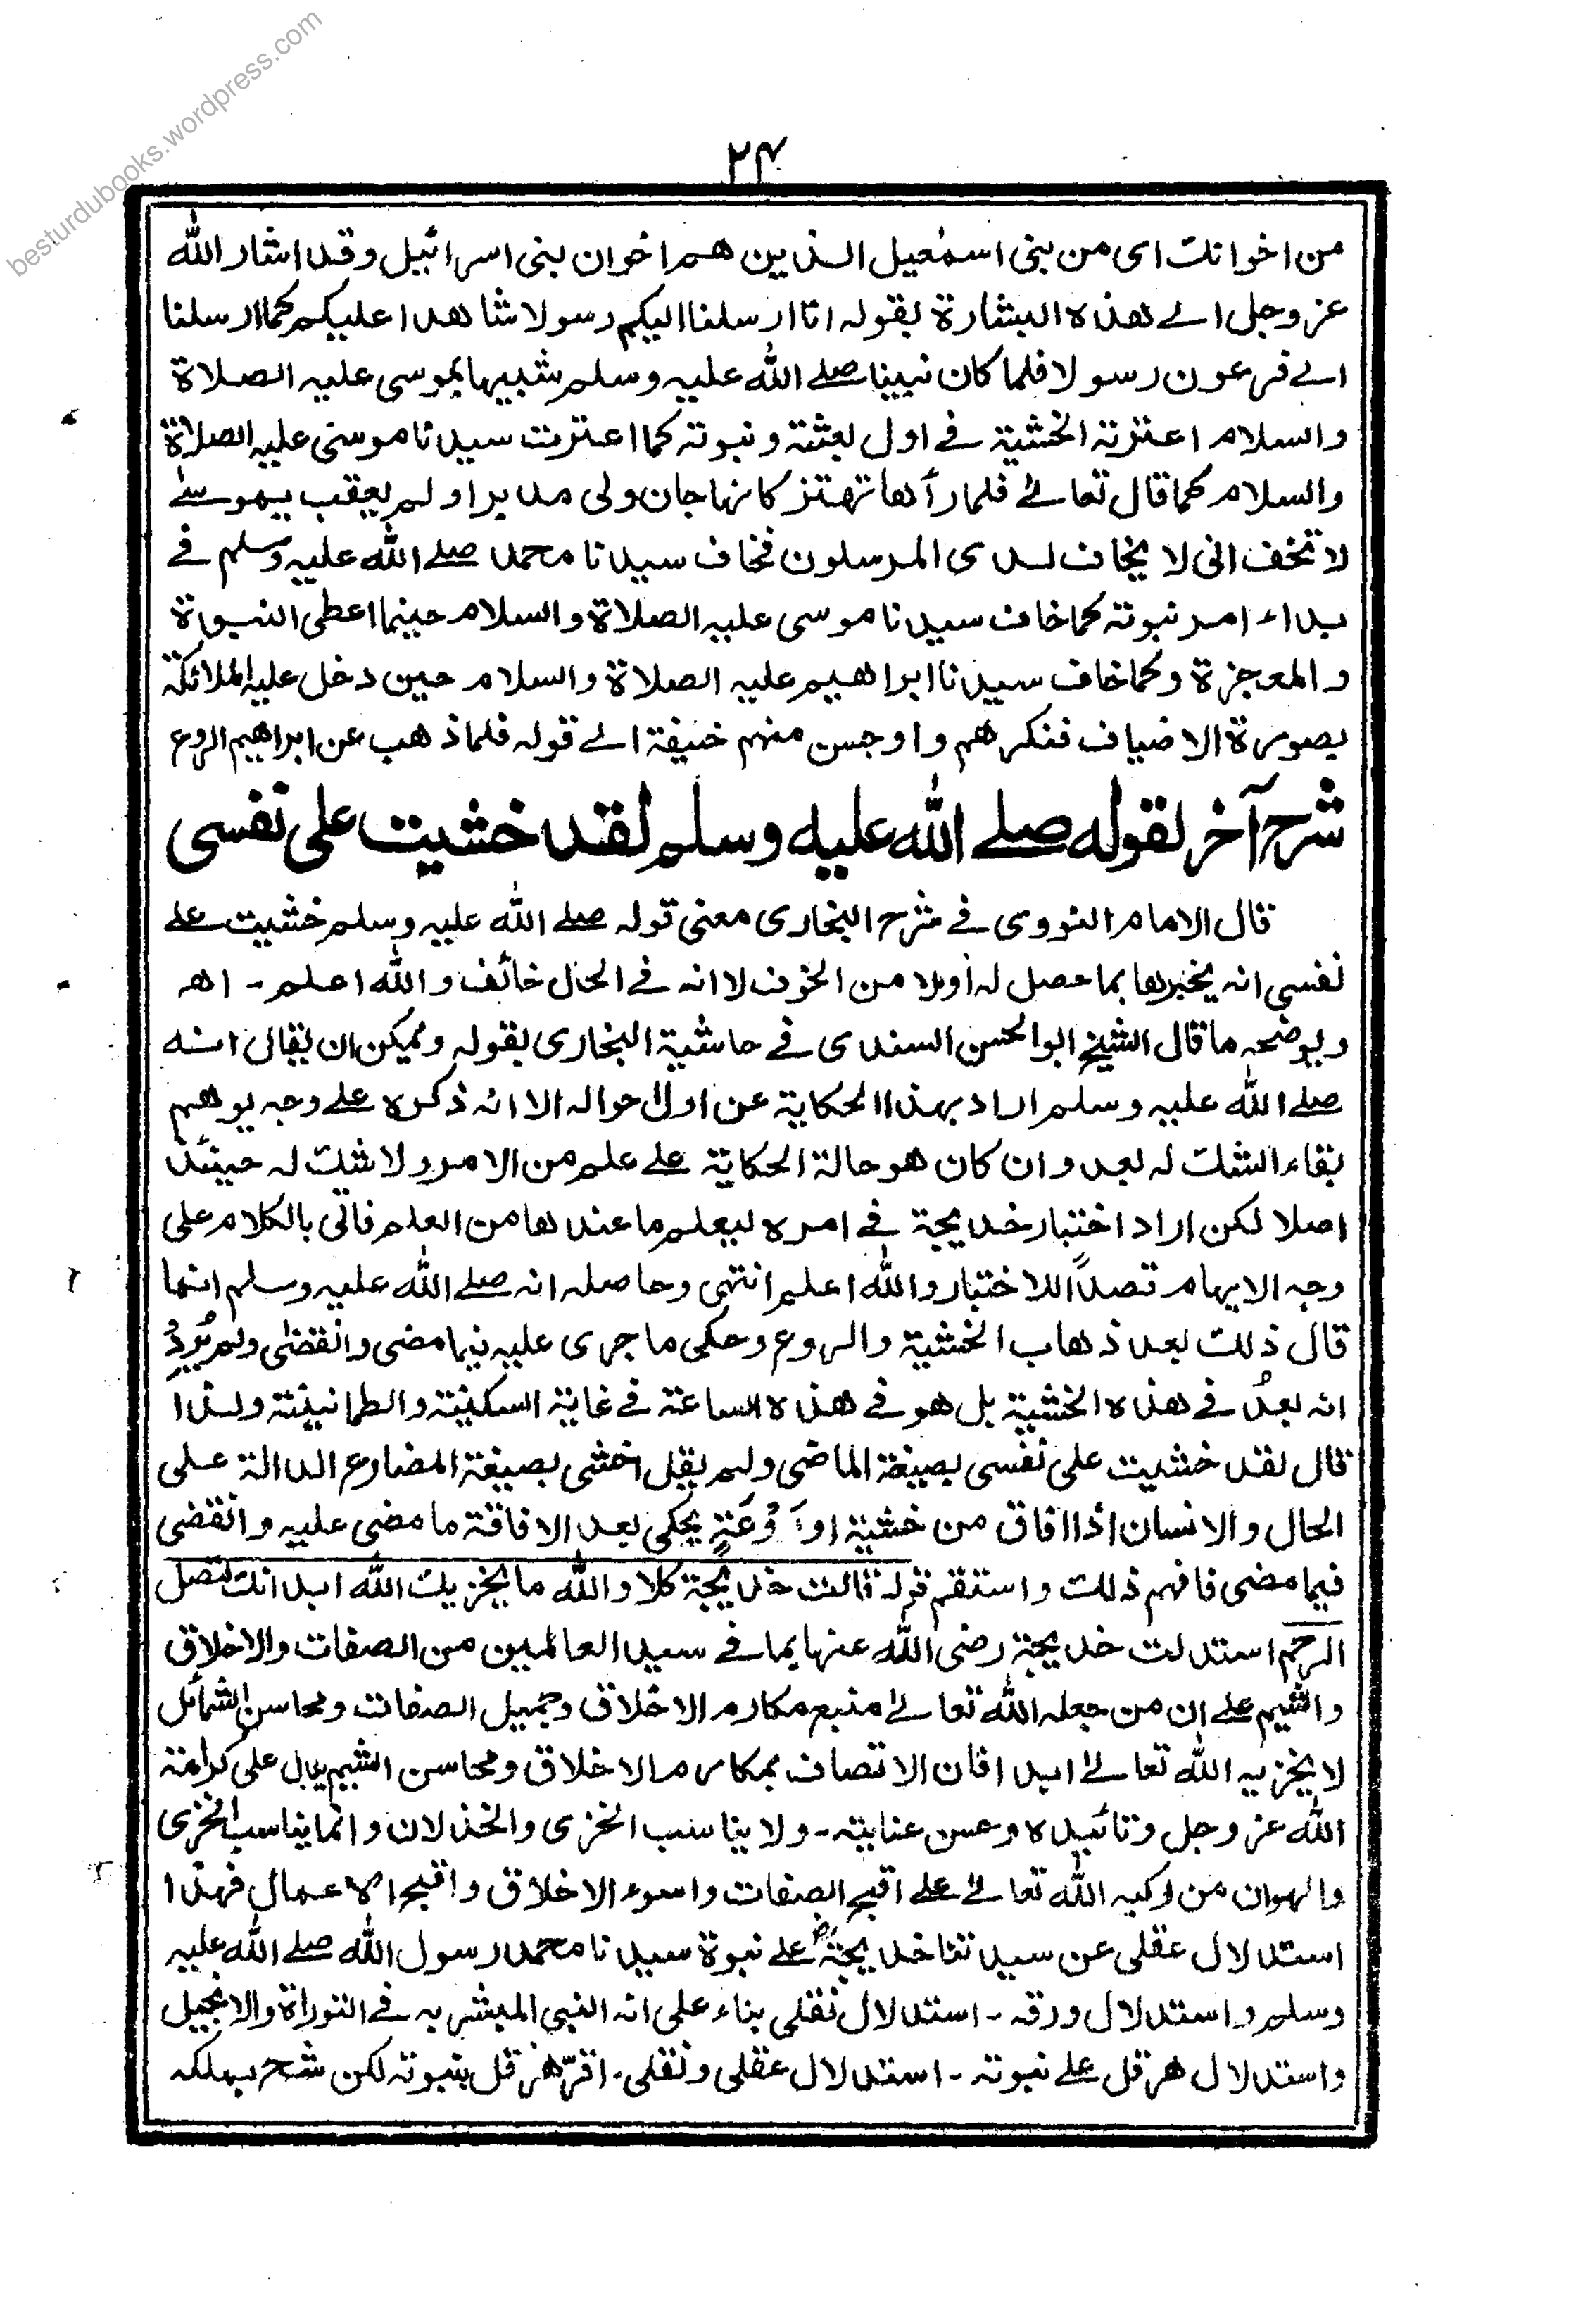 besturdubooks.wordpress.com
۲۴
من اخوانك اى من بنى اسمٰعيل الذين هم اخوان بنى اسرائيل وقد اشار الله
عز وجل الے هذه البشارة بقوله انا ارسلنا اليكم رسولا شاهدا عليكم كما ارسلنا
الے فرعون رسولا فلما كان نبينا صلے الله عليه وسلم شبيها بموسى عليه الصلاة
والسلام اعتزته الخشية فے اول بعثته ونبوته كما اعترت سيدنا موسىٰ عليه الصلاة
والسلام كما قال تعالےٰ فلما رأها تهتز كانها جان ولى مدبرا ولم يعقب يموسےٰ
لا تخف انى لا يخاف لدى المرسلون فخاف سيدنا محمد صلے الله عليه وسلم فے
بداء امر نبوته كما خاف سيدنا موسى عليه الصلاة والسلام حينما اعطى النبوة
والمعجزة وكما خاف سيدنا ابراهيم عليه الصلاة والسلام حين دخل عليه الملائكة
بصورة الاضياف فنكرهم واوجس منهم خيفة الے قوله فلما ذهب عن ابراهيم الروع
شرح آخر لقوله صلے الله عليه وسلم لقد خشيت على نفسى
قال الامام النووى فے شرح البخارى معنى قوله صلے الله عليه وسلم خشيت علے
نفسى انه يخبرها بما حصل له اولا من الخوف لا انه فے الحال خائف والله اعلم - اهـ
ويوضحه ما قال الشيخ ابو الحسن السندى فے حاشية البخارى بقوله ويمكن ان يقال انه
صلے الله عليه وسلم اراد بهذا الحكاية عن اول احواله الا انه ذكره علے وجه يوهم
بقاء الشك له بعد وان كان هو حالة الحكاية علے علم من الامر ولا شك له حينئذ
اصلا لكن اراد اختبار خديجة فے امره ليعلم ما عندها من العلم فاتى بالكلام على
وجه الايهام قصداً للاختبار والله اعلم انتهى وحاصله انه صلے الله عليه وسلم انما
قال ذلك بعد ذهاب الخشية والروع وحكى ما جرى عليه فيما مضى وانقضٰى ولم يُرِدْ
انه بعدُ فے هذه الخشية بل هو فے هذه الساعة فے غاية السكينة والطمانينة ولذا
قال لقد خشيت على نفسى بصيغة الماضى ولم يقل اخشى بصيغة المضارع الدالة على
الحال والانسان اذا افاق من خشية او رَوْعَةٍ يحكى بعد الافاقة ما مضى عليه وانقضى
فيما مضى فافهم ذلك واستقم قوله قالت خديجة كلا والله ما يخزيك الله ابدا انك لتصل
الرحم استدلت خديجة رضى الله عنها بما فے سيد العالمين من الصفات والاخلاق
والشيم علے ان من جعله الله تعالےٰ منبع مكارم الاخلاق وجميل الصفات ومحاسن الشمائل
لا يخزيه الله تعالےٰ ابدا فان الاتصاف بمكارم الاخلاق ومحاسن الشيم يدل على كرامة
الله عز وجل وتائيده وحسن عنايته - ولا يناسب الخزى والخذلان وانما يناسب الخزى
والهوان من ركبه الله تعالےٰ علے اقبح الصفات واسوء الاخلاق واقبح الاعمال فهذا
استدلال عقلى عن سيدتنا خديجةؓ علے نبوة سيدنا محمد رسول الله صلے الله عليه
وسلم واستدلال ورقه - استدلال نقلى بناء على انه النبى المبشر به فے التوراة والانجيل
واستدلال هرقل علے نبوته - استدلال عقلى ونقلى - اقرّ هرقل بنبوته لكن شح بملكه